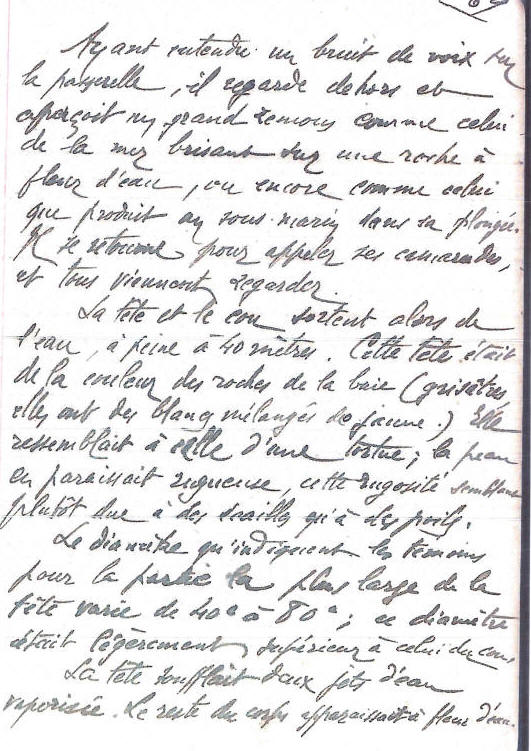 Ayant entendu un bruit de voix sur
la passerelle, il regarde dehors et
aperçoit un grand remous comme celui
de la mer brisant sur une roche à
fleur d'eau, ou encore comme celui
que produit un sous-marin dans sa plongée.
Il se retourne pour appeler ses camarades,
et tous viennent regarder.
La tête et le cou sortent alors de
l'eau, à peine à 40 mètres. Cette tête était
de la couleur des roches de la baie (grisâtres,
elles ont des blancs mélangés de jaune.) Elle
ressemblait à celle d'une tortue; la peau
en paraissait rugueuse, cette rugosité semblant
plutôt due à des écailles qu'à des poils.
Le diamètre qu'indiquent les témoins
pour la partie la plus large de la
tête varie de 40c à 80c; ce diamètre
était légèrement supérieur à celui du cou.
La tête soufflait deux jets d'eau
vaporisée. Le reste du corps apparaissait à fleur d'eau.